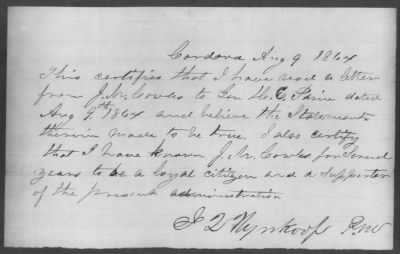 Cordova Aug 9 1864
This certifies that I have read a letter
from J. M. Combs to Gen H. E. Paine dated
Aug 9th 1864 and believe the Statements
therein made to be true. I also certify
that I have known J. M. Combs for Several
years to be a loyal citizen and a supporter
of the present administration
J Q Wynkoop P.M.